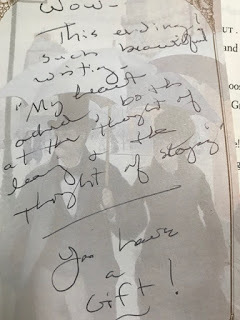 Wow -
This ending!
such beautiful
writing
"My heart
ached both
at the thought of
leaving & the
thought of staying"
You have
a
Gift!
UT.
and